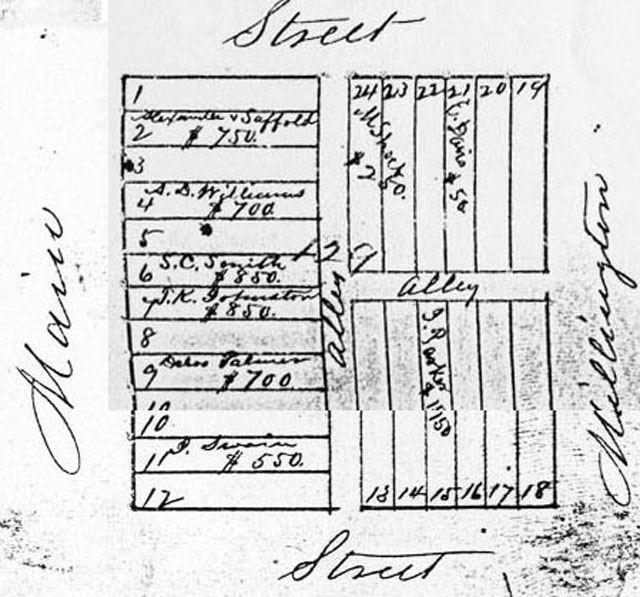 Street
Main
1
Alexander & Saffold
2 $ 750.
3
A. D. Williams
4 $ 700
5
S.C. Smith
6 $ 850.
7 J.K. Johnston
$ 850.
8
9 Delos Palmer
$ 700
10
11 J. Swain
$ 550.
12
129
Alley
24 23 22 21 20 19
M. Shock
$ 250.
$ 50
Alley
J. Parker
$ 1150
13 14 15 16 17 18
Millington
Street